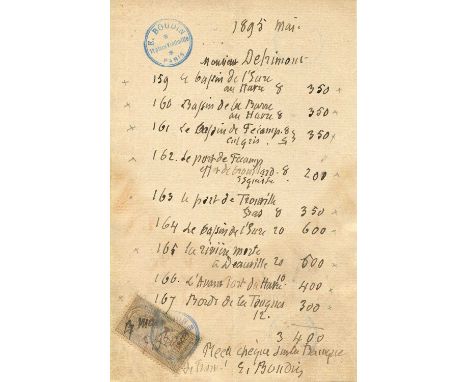 1895 Mai.
E. BOUDIN
PARIS
Monsieur Detrimont
159 Le bassin de l'Eure
au Havre 8 350
160 Bassin de la Barre
au Havre 8 350
161 Le Bassin de Fécamp 8
ciel gris 350
162. Le port de Fécamp
effet de brouillard 8
Esquisse 200
163 Le port de Trouville
8 350
164 Le bassin de l'Eure 20 600
165 la rivière morte
à Deauville 20 600
166. L'Avant Port du Havre 10 400
167 Bords de la Touques 300
12.
3400
chèque sur la Banque
E. Boudin